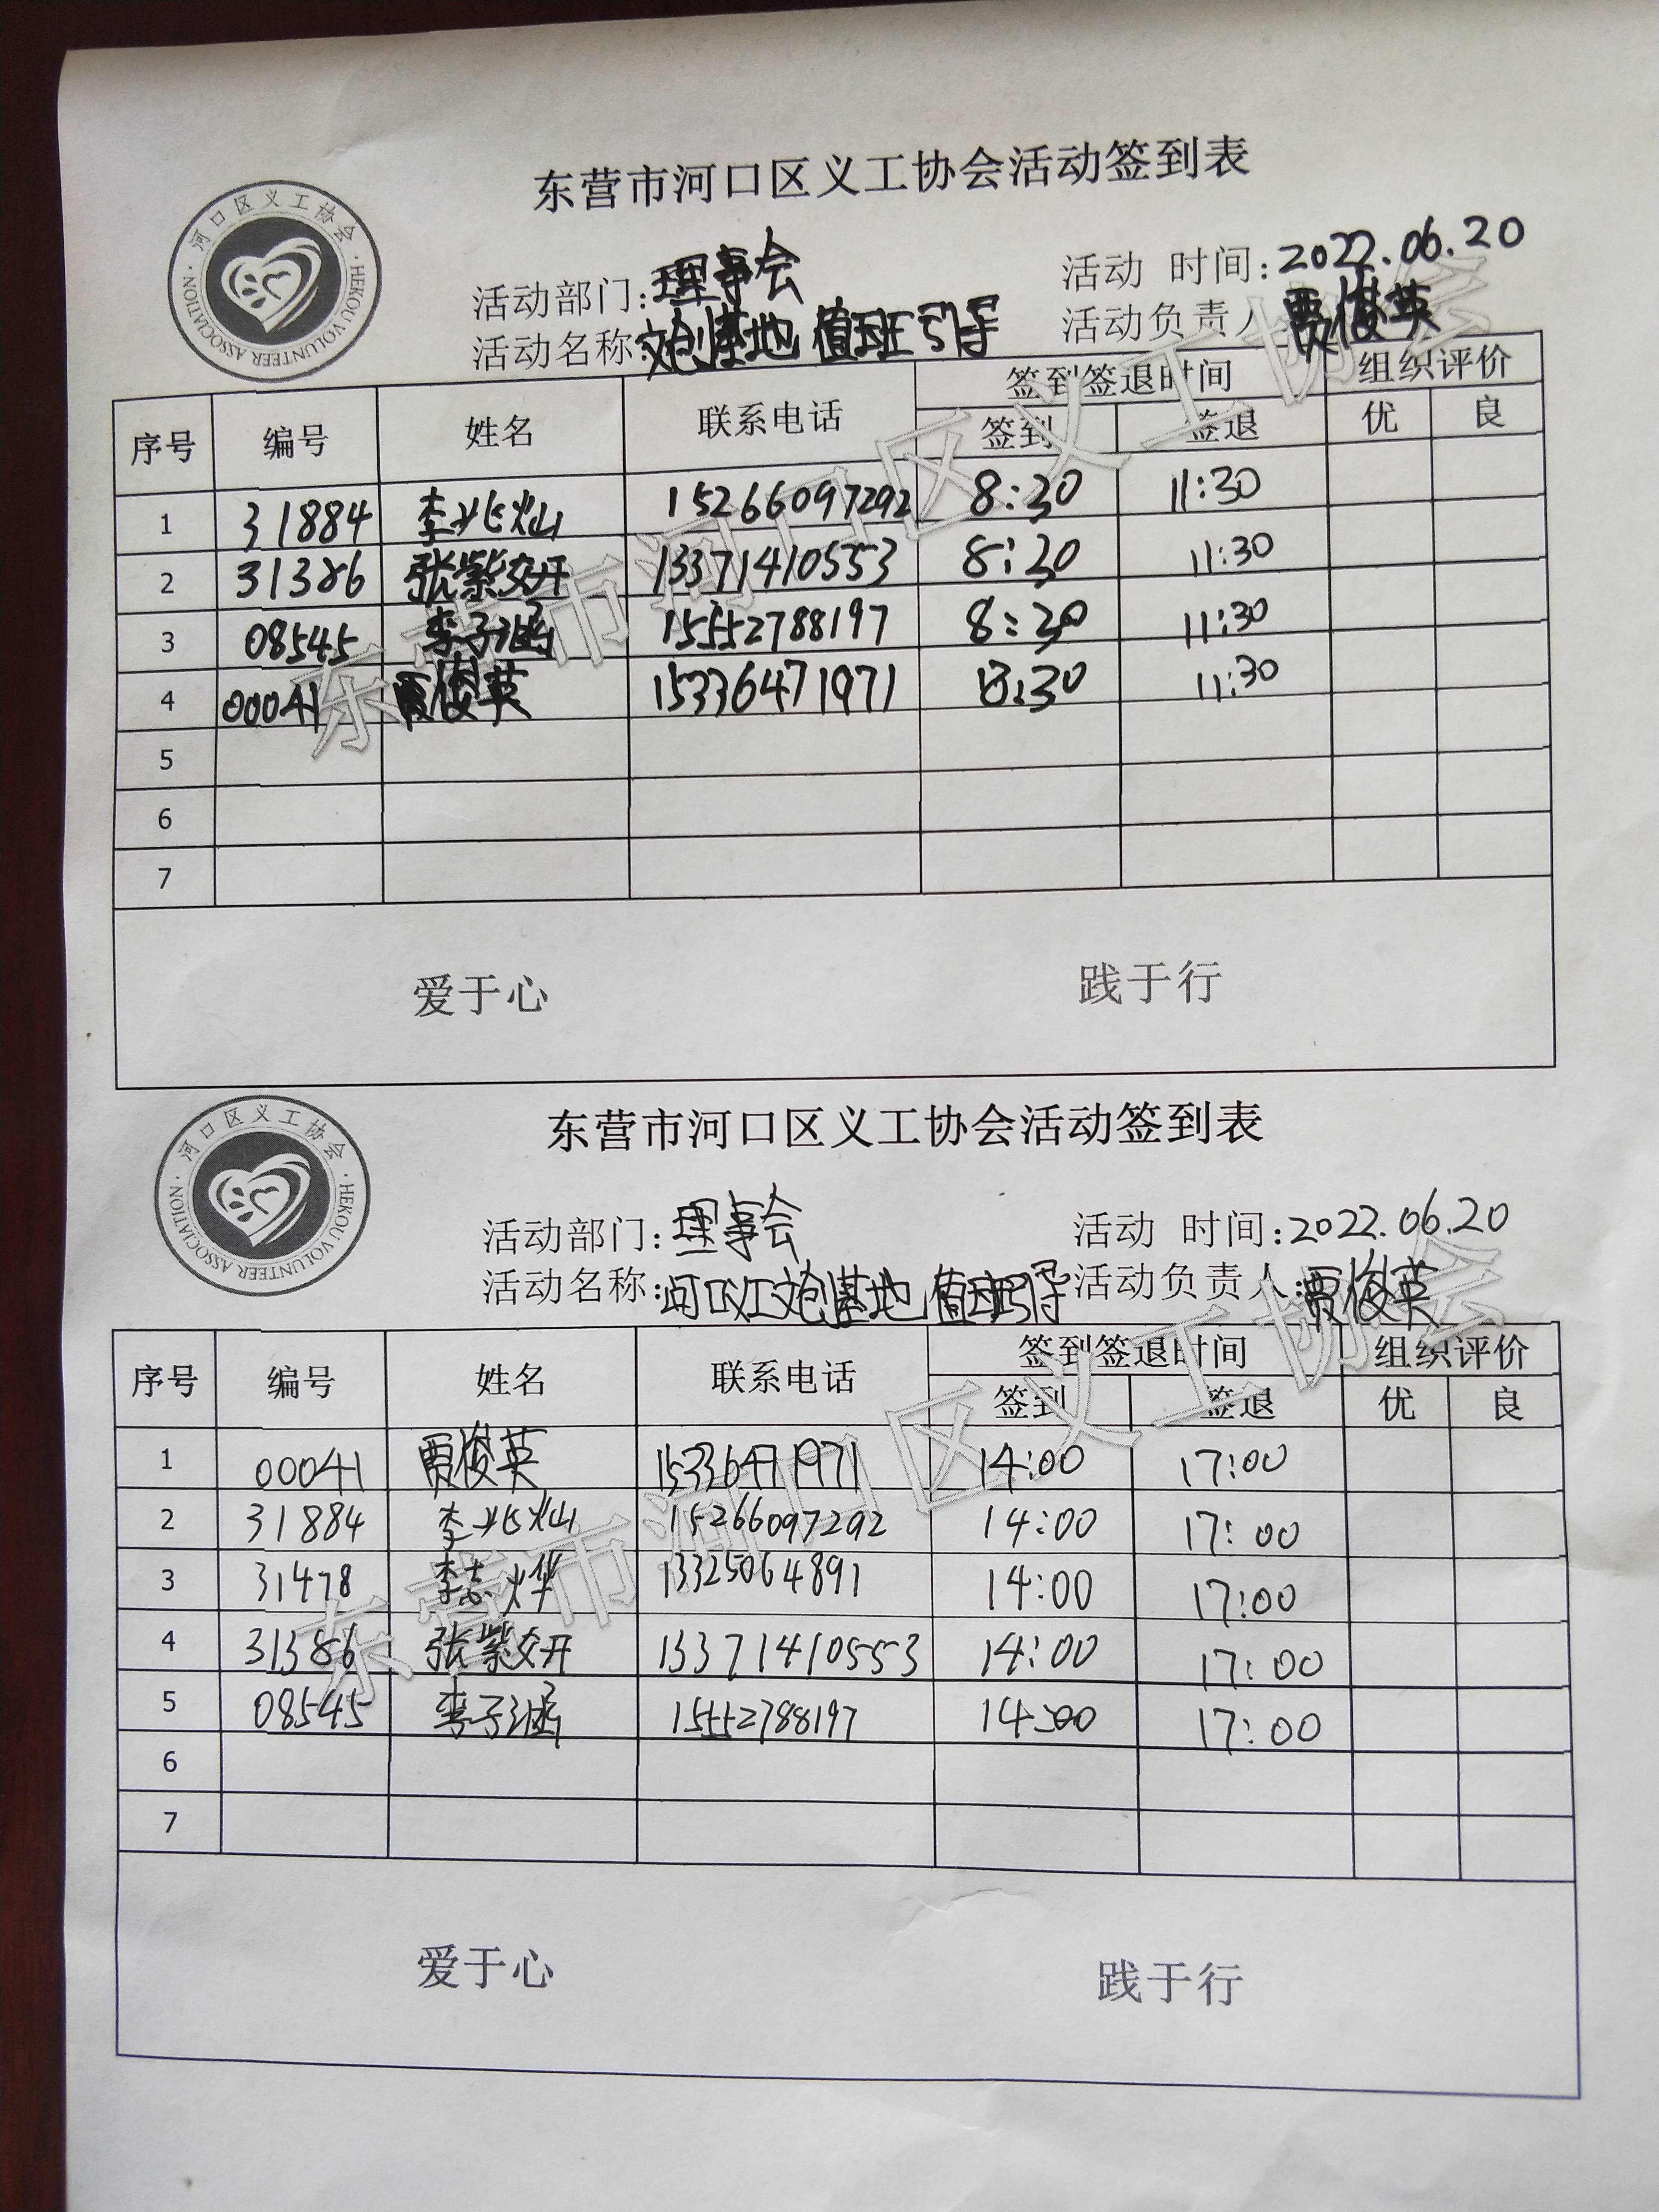 东营市河口区义工协会活动签到表
河口区义工协会
HEKOU VOLUNTEER ASSOCIATION
活动部门:理事会 活动 时间:2022.06.20
活动名称:文创基地 值班引导 活动负责人:贾俊英
序号 编号 姓名 联系电话 签到签退时间 组织评价
签到 签退 优 良
1 31884 李兆灿 15266097292 8:30 11:30
2 31386 张紫妍 13371410553 8:30 11:30
3 08545 李子涵 15552788197 8:30 11:30
4 00041 贾俊英 15336471971 8:30 11:30
5
6
7
爱于心 践于行
东营市河口区义工协会
东营市河口区义工协会活动签到表
河口区义工协会
HEKOU VOLUNTEER ASSOCIATION
活动部门:理事会 活动 时间:2022.06.20
活动名称:河口义工文创基地 值班引导 活动负责人:贾俊英
序号 编号 姓名 联系电话 签到签退时间 组织评价
签到 签退 优 良
1 00041 贾俊英 15336471971 14:00 17:00
2 31884 李兆灿 15266097292 14:00 17:00
3 31478 李志烨 13325064891 14:00 17:00
4 31386 张紫妍 13371410553 14:00 17:00
5 08545 李子涵 15552788197 14:00 17:00
6
7
爱于心 践于行
东营市河口区义工协会